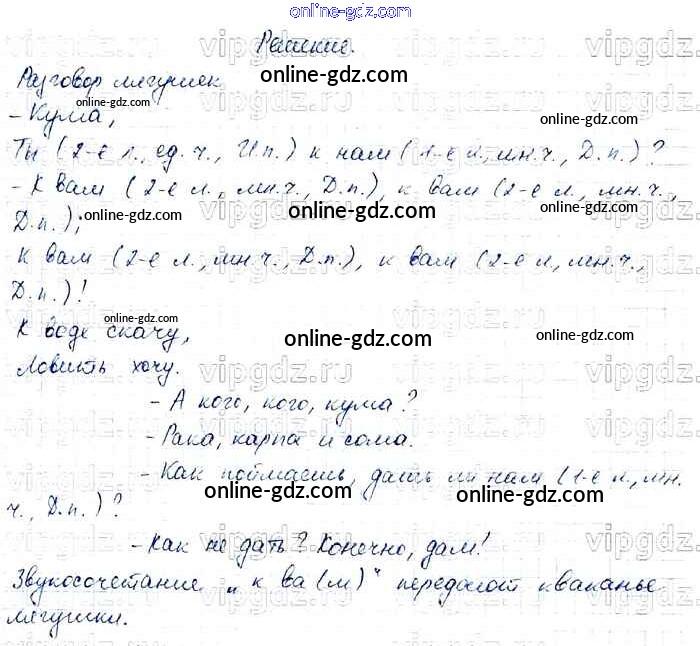 online-gdz.com
Решение.
Разговор лягушек
online-gdz.com
online-gdz.com
- Кума,
online-gdz.com
Ты (2-е л., ед. ч., И.п.) к нам (1-е л., мн.ч., Д.п.)?
- К вам (2-е л., мн.ч., Д.п.), к вам (2-е л., мн.ч.,
Д.п.),
online-gdz.com
online-gdz.com
к вам (2-е л., мн.ч., Д.п.), к вам (2-е л., мн.ч.,
Д.п.)!
К воде скачу,
online-gdz.com
online-gdz.com
Ловить хочу.
- А кого, кого, кума?
online-gdz.com
- Рака, карпа и сома.
- Как поймаешь, дашь ли нам (1-е л., мн.
ч., Д.п.)?
online-gdz.com
online-gdz.com
- Как не дать? Конечно, дам!
Звукосочетание "к ва(м)" передают кваканье
лягушки.
vipgdz.ru